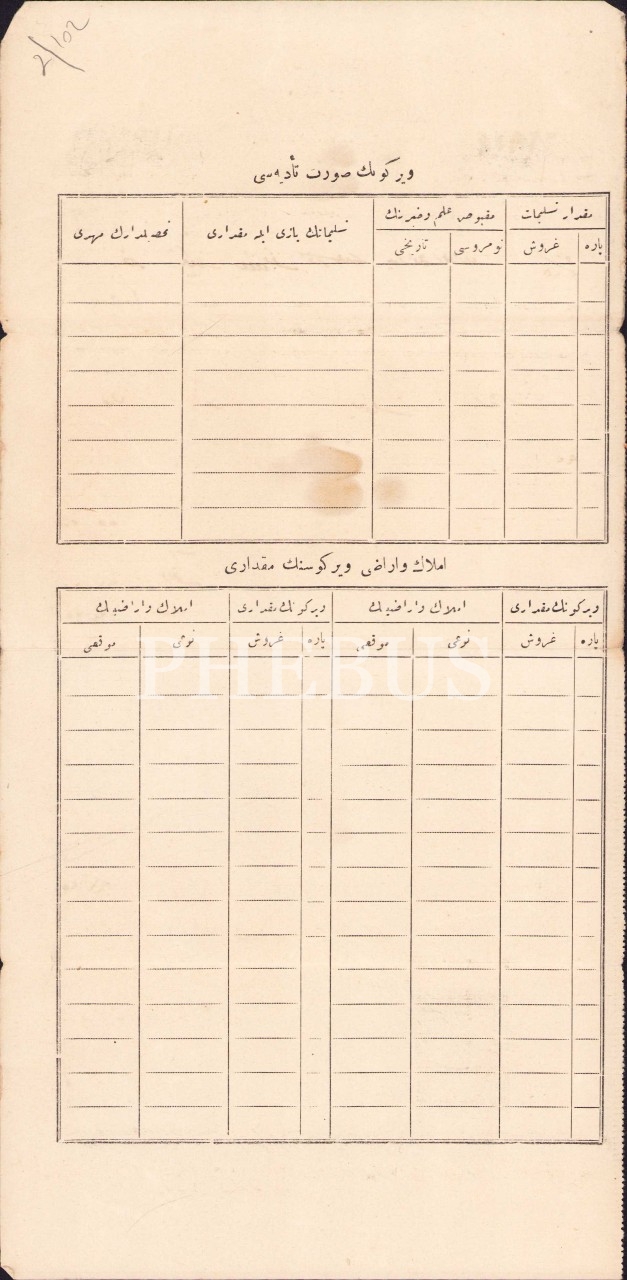 2/102
ویركونك صورت تأدیه‌سی
مقدار تسلیمات
مقبوض علم وخبرینك
تسلیماتك یازی ایله مقداری
تحصیلدارك مهری
پاره
غروش
نومروسی
تاریخی
املاك واراضی ویركوسنك مقداری
ویركونك مقداری
املاك واراضینك
ویركونك مقداری
املاك واراضینك
پاره
غروش
نوعی
موقعی
پاره
غروش
نوعی
موقعی
PHEBUS